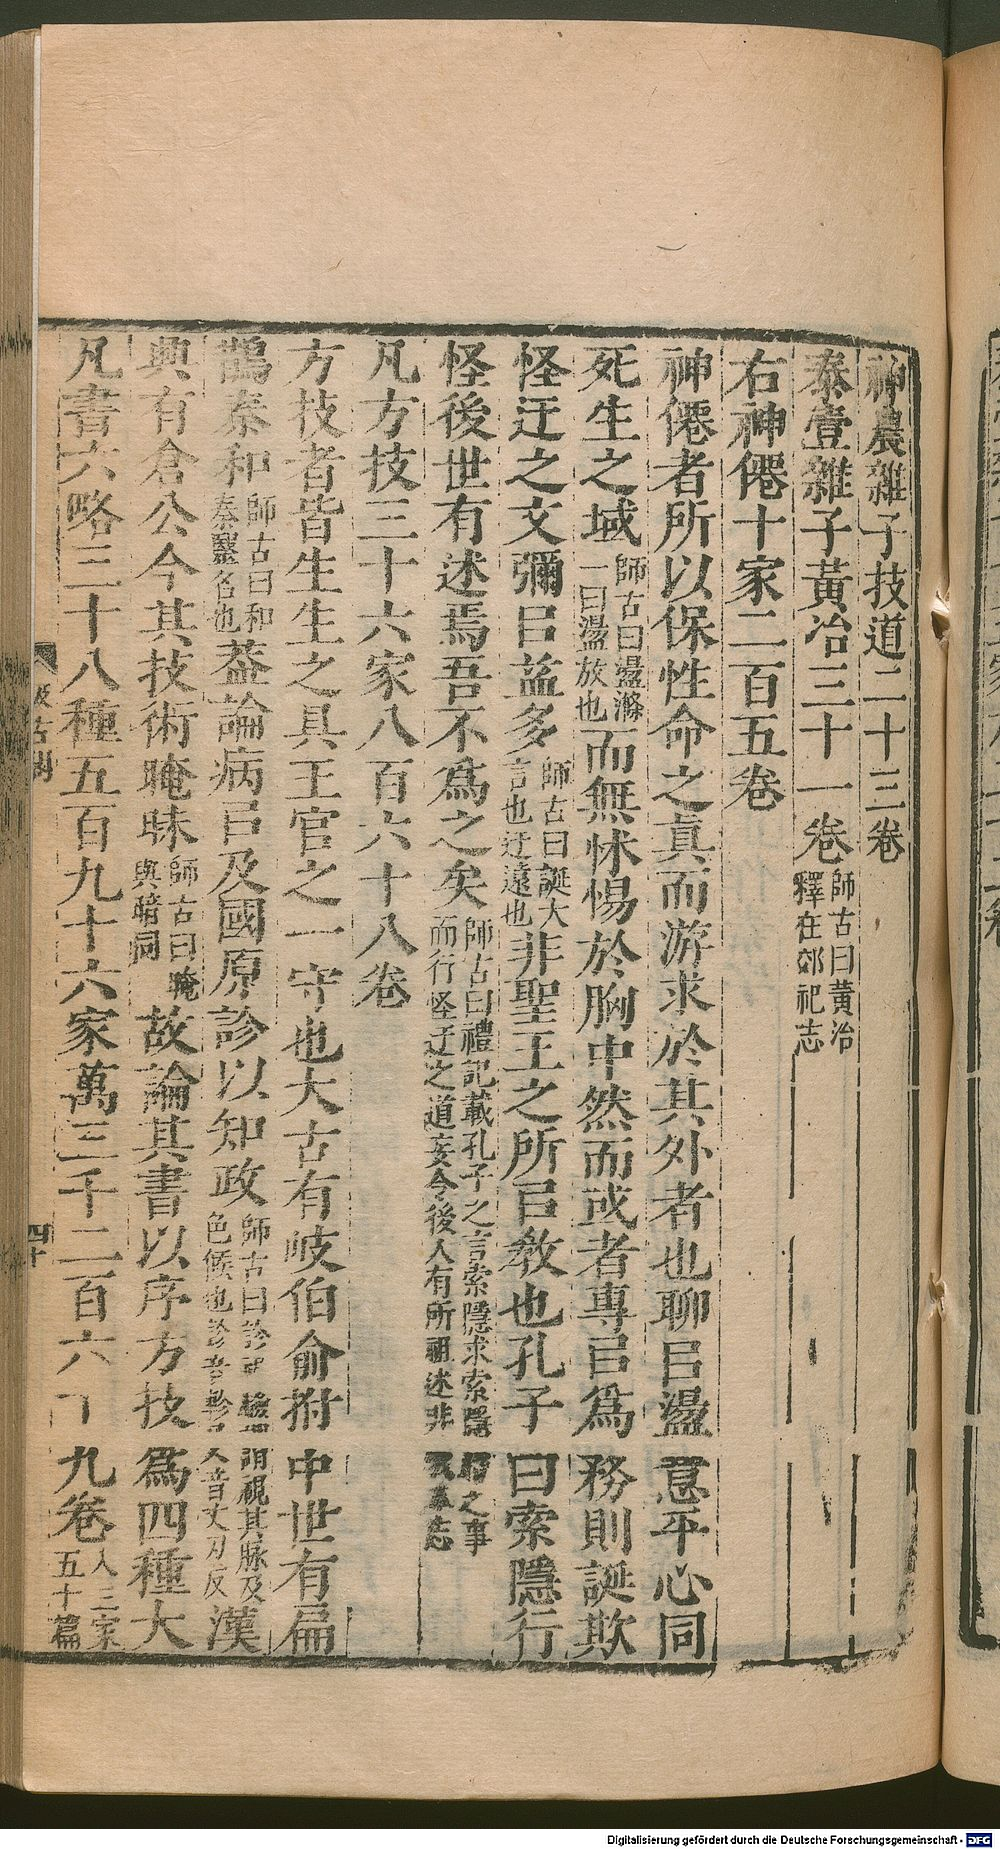 神農雜子技道二十三卷
泰壹雜子黃冶三十一卷師古曰黃冶釋在郊祀志
右神僊十家二百五卷
神僊者所以保性命之真而游求於其外者也聊㠯盪意平心同
死生之域師古曰盪滌一曰盪放也而無怵惕於胸中然而或者專㠯爲務則誕欺
怪迂之文彌㠯益多師古曰誕大言也迂遠也非聖王之所㠯教也孔子曰索隱行
怪後世有述焉吾不爲之矣師古曰禮記載孔子之言索隱求索隱暗之事而行怪迂之道妄令後人有所祖述非
凡方技三十六家八百六十八卷
方技者皆生生之具王官之一守也大古有岐伯俞拊中世有扁
鵲秦和師古曰和秦毉名也葢論病㠯及國原診以知政師古曰診視驗謂視其脉及色候也診音軫又音丈刃反漢
興有倉公今其技術晻昧師古曰晻與暗同故論其書以序方技爲四種大
凡書六略三十八種五百九十六家萬三千二百六十九卷入三家五十篇
汲古閣
四十
Digitalisierung gefördert durch die Deutsche Forschungsgemeinschaft - DFG